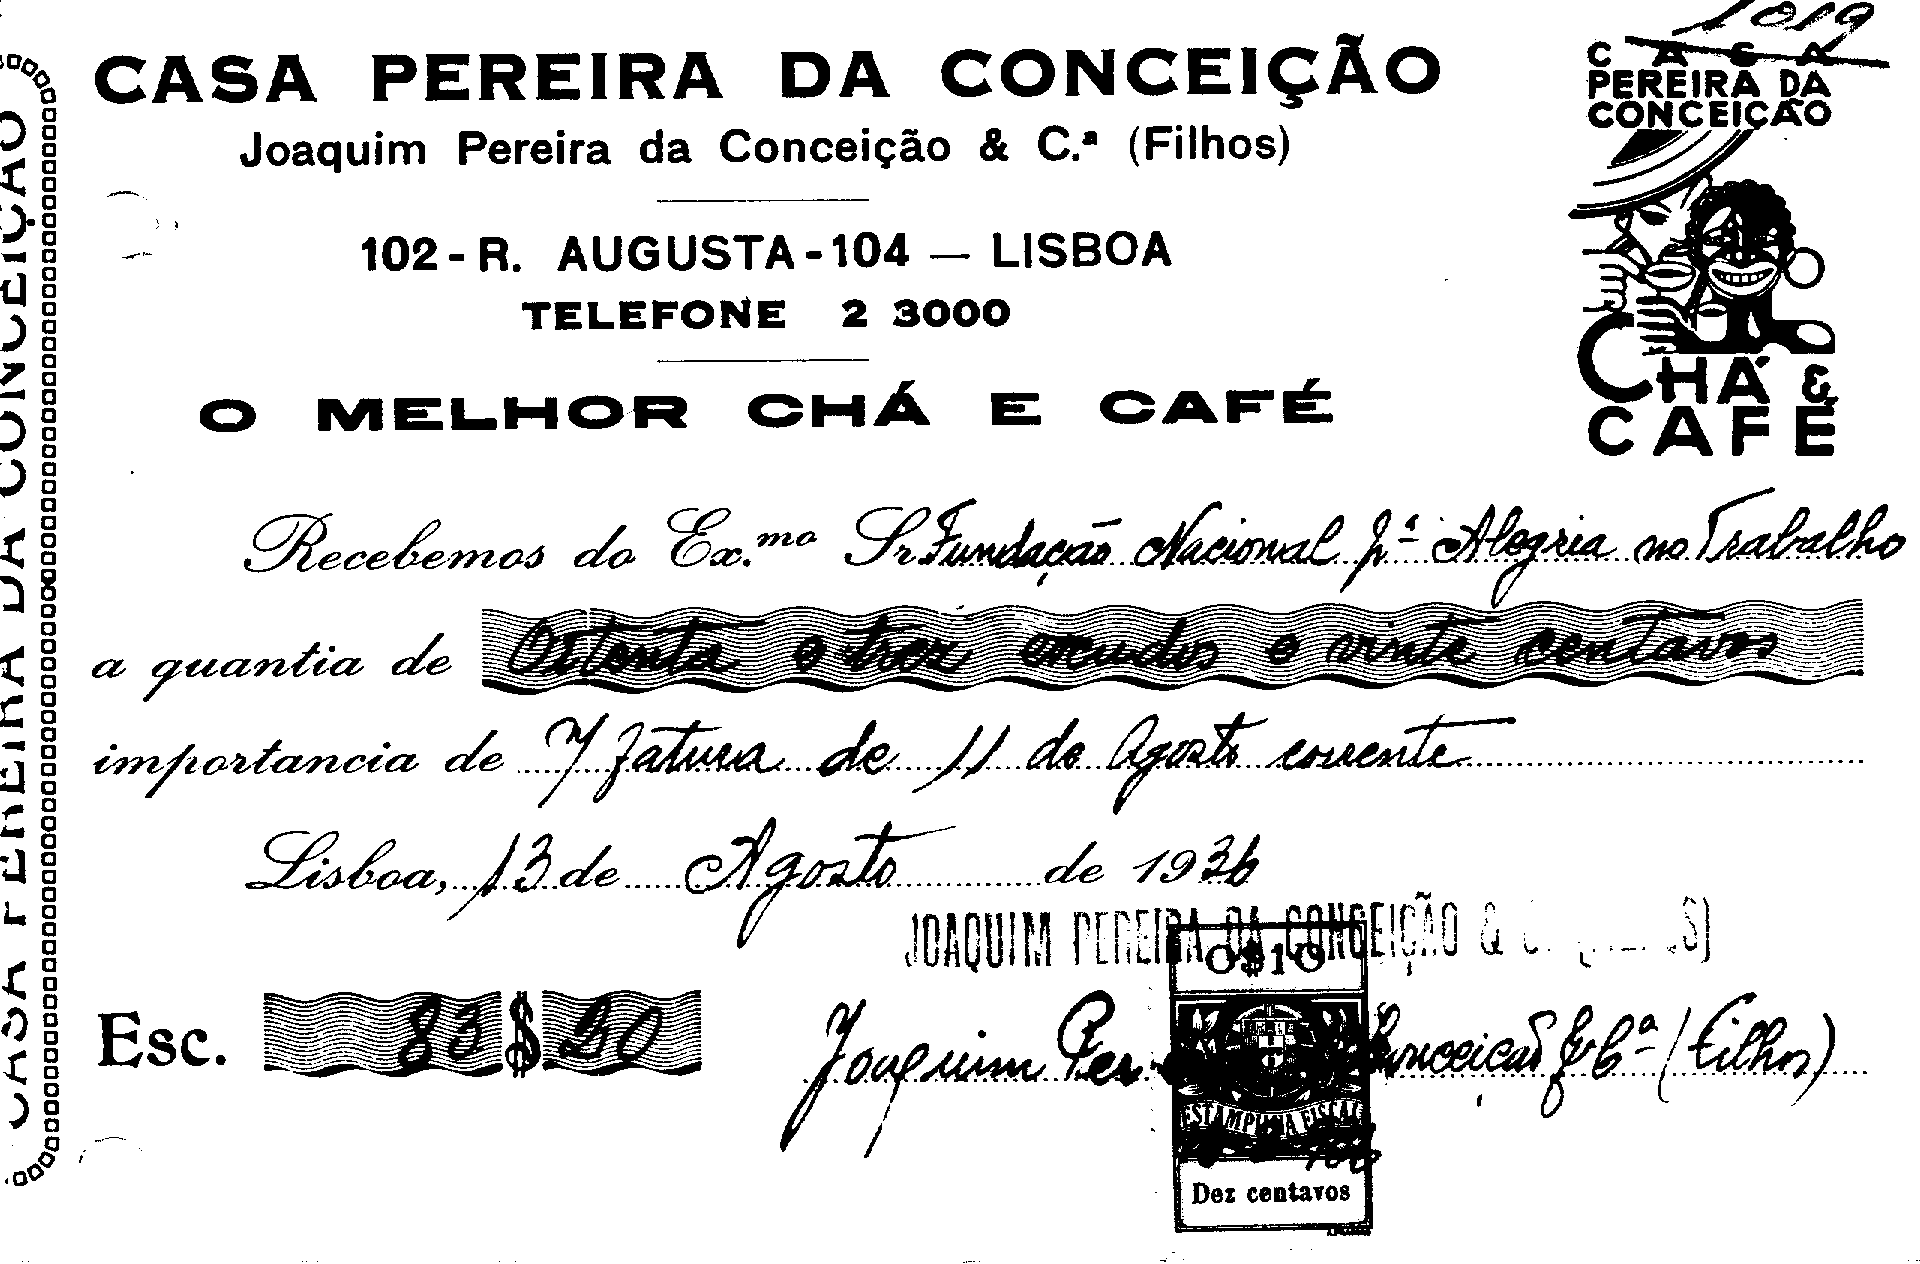 1019
CASA PEREIRA DA CONCEIÇÃO
Joaquim Pereira da Conceição & C.ª (Filhos)
102 - R. AUGUSTA - 104 — LISBOA
TELEFONE 2 3000
O MELHOR CHÁ E CAFÉ
CASA
PEREIRA DA
CONCEIÇÃO
CHÁ &
CAFÉ
CASA PEREIRA DA CONCEIÇÃO
Recebemos do Ex.mo Sr Fundação Nacional pª Alegria no Trabalho
a quantia de Oitenta e trez escudos e vinte centavos
importancia de n/ fatura de 11 de Agosto corrente
Lisboa, 13 de Agosto de 1936
JOAQUIM PEREIRA DA CONCEIÇÃO &
O$10
Esc. 83$20
Joaquim Conceição & Cª (Filhos)
ESTAMPILHA FISCAL
Dez centavos